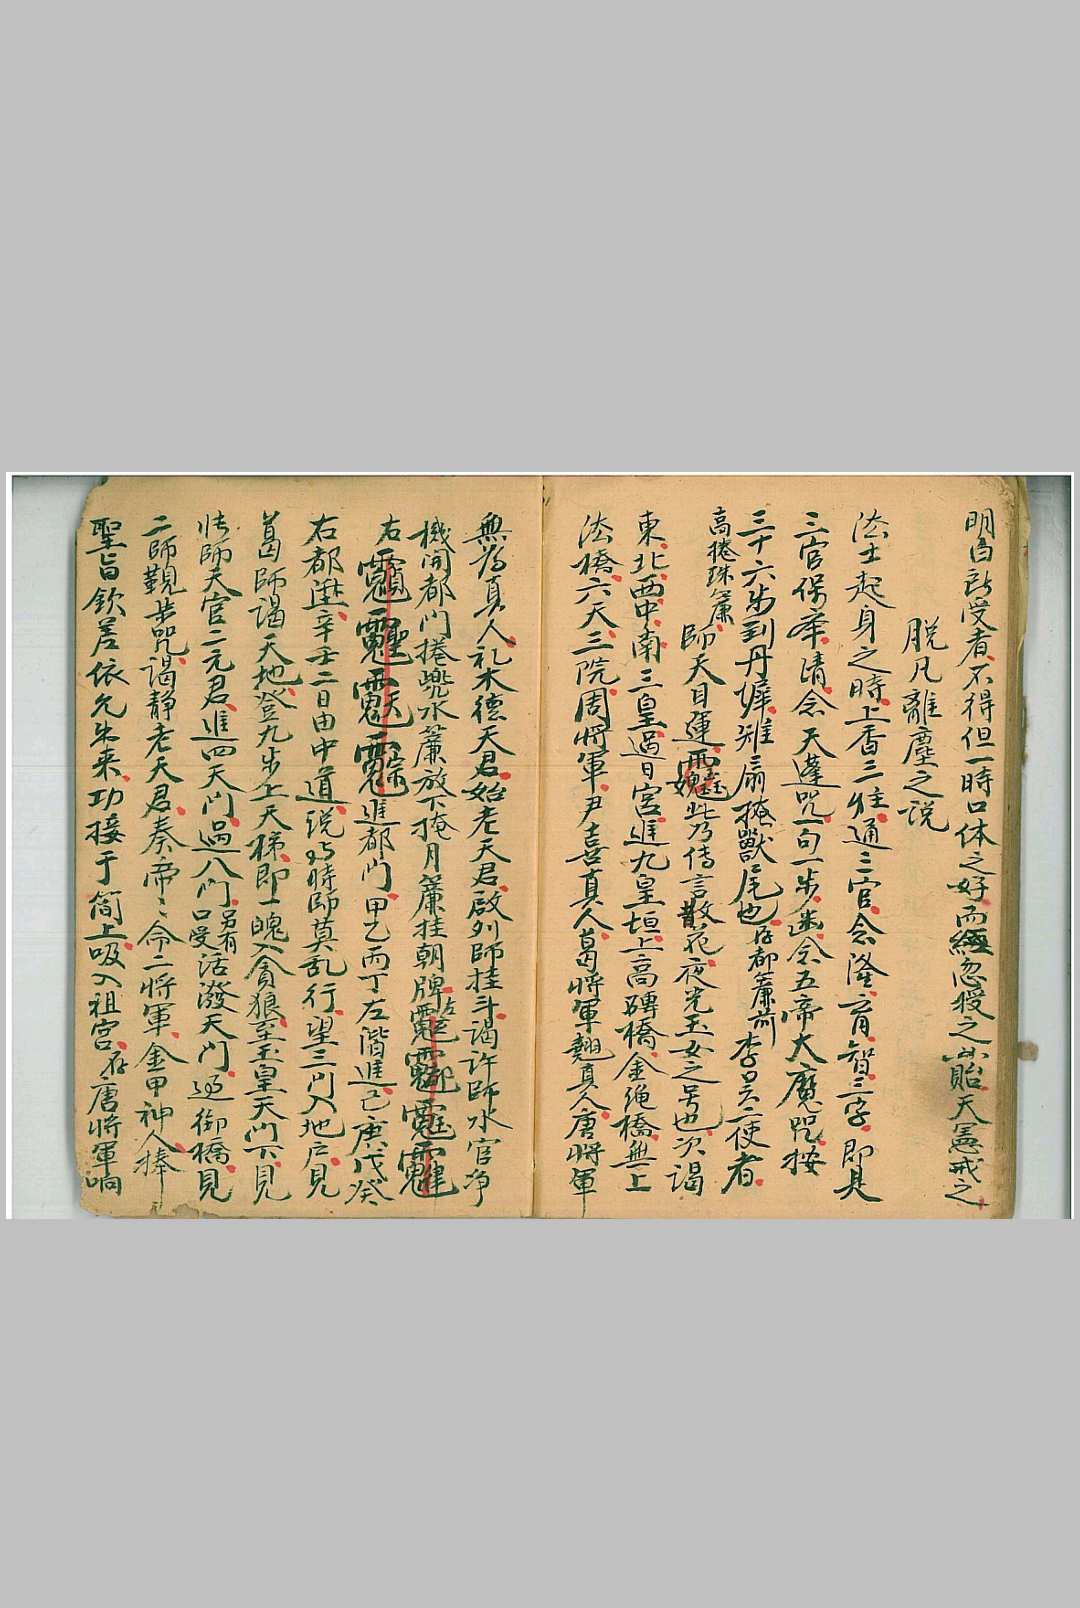 明白所受者不得但一時口体之好而經忽授之貽天憲戒之
脫凡離塵之説
法士起身之時上香三炷通三官念隆育智三字即具
三官保奉請念天蓬咒一句一步迷念五帝大魔咒按
三十六步到丹墀雉扇掩獸尾也存都簾前李吳二使者
高捲珠簾師天目運此乃傳言散花夜光玉女之号也次謁
東北西中南三皇過日宮進九皇垣上高磚橋金繩橋無上
法橋六天三院周將軍尹喜真人葛將軍翹真人唐將軍
無為真人礼木德天君始老天君啟列師挂斗謁許師水官净
機開都門捲兜水簾放下掩月簾挂朝牌左
右進都門甲乙丙丁左階進己庚戊癸
右都進辛壬二日由中道説此時師莫乱行望三门入地户見
葛師謁天地登九步上天梯即一魄入貪狼至玉皇天门下見
張師天官二元君進四天门過八门另有口受活潑天门過御橋見
二師觀步咒謁靜老天君奏帝〻令二將軍金甲神人捧
聖旨欽差依允出來功接于简上吸入祖宫存唐將軍响